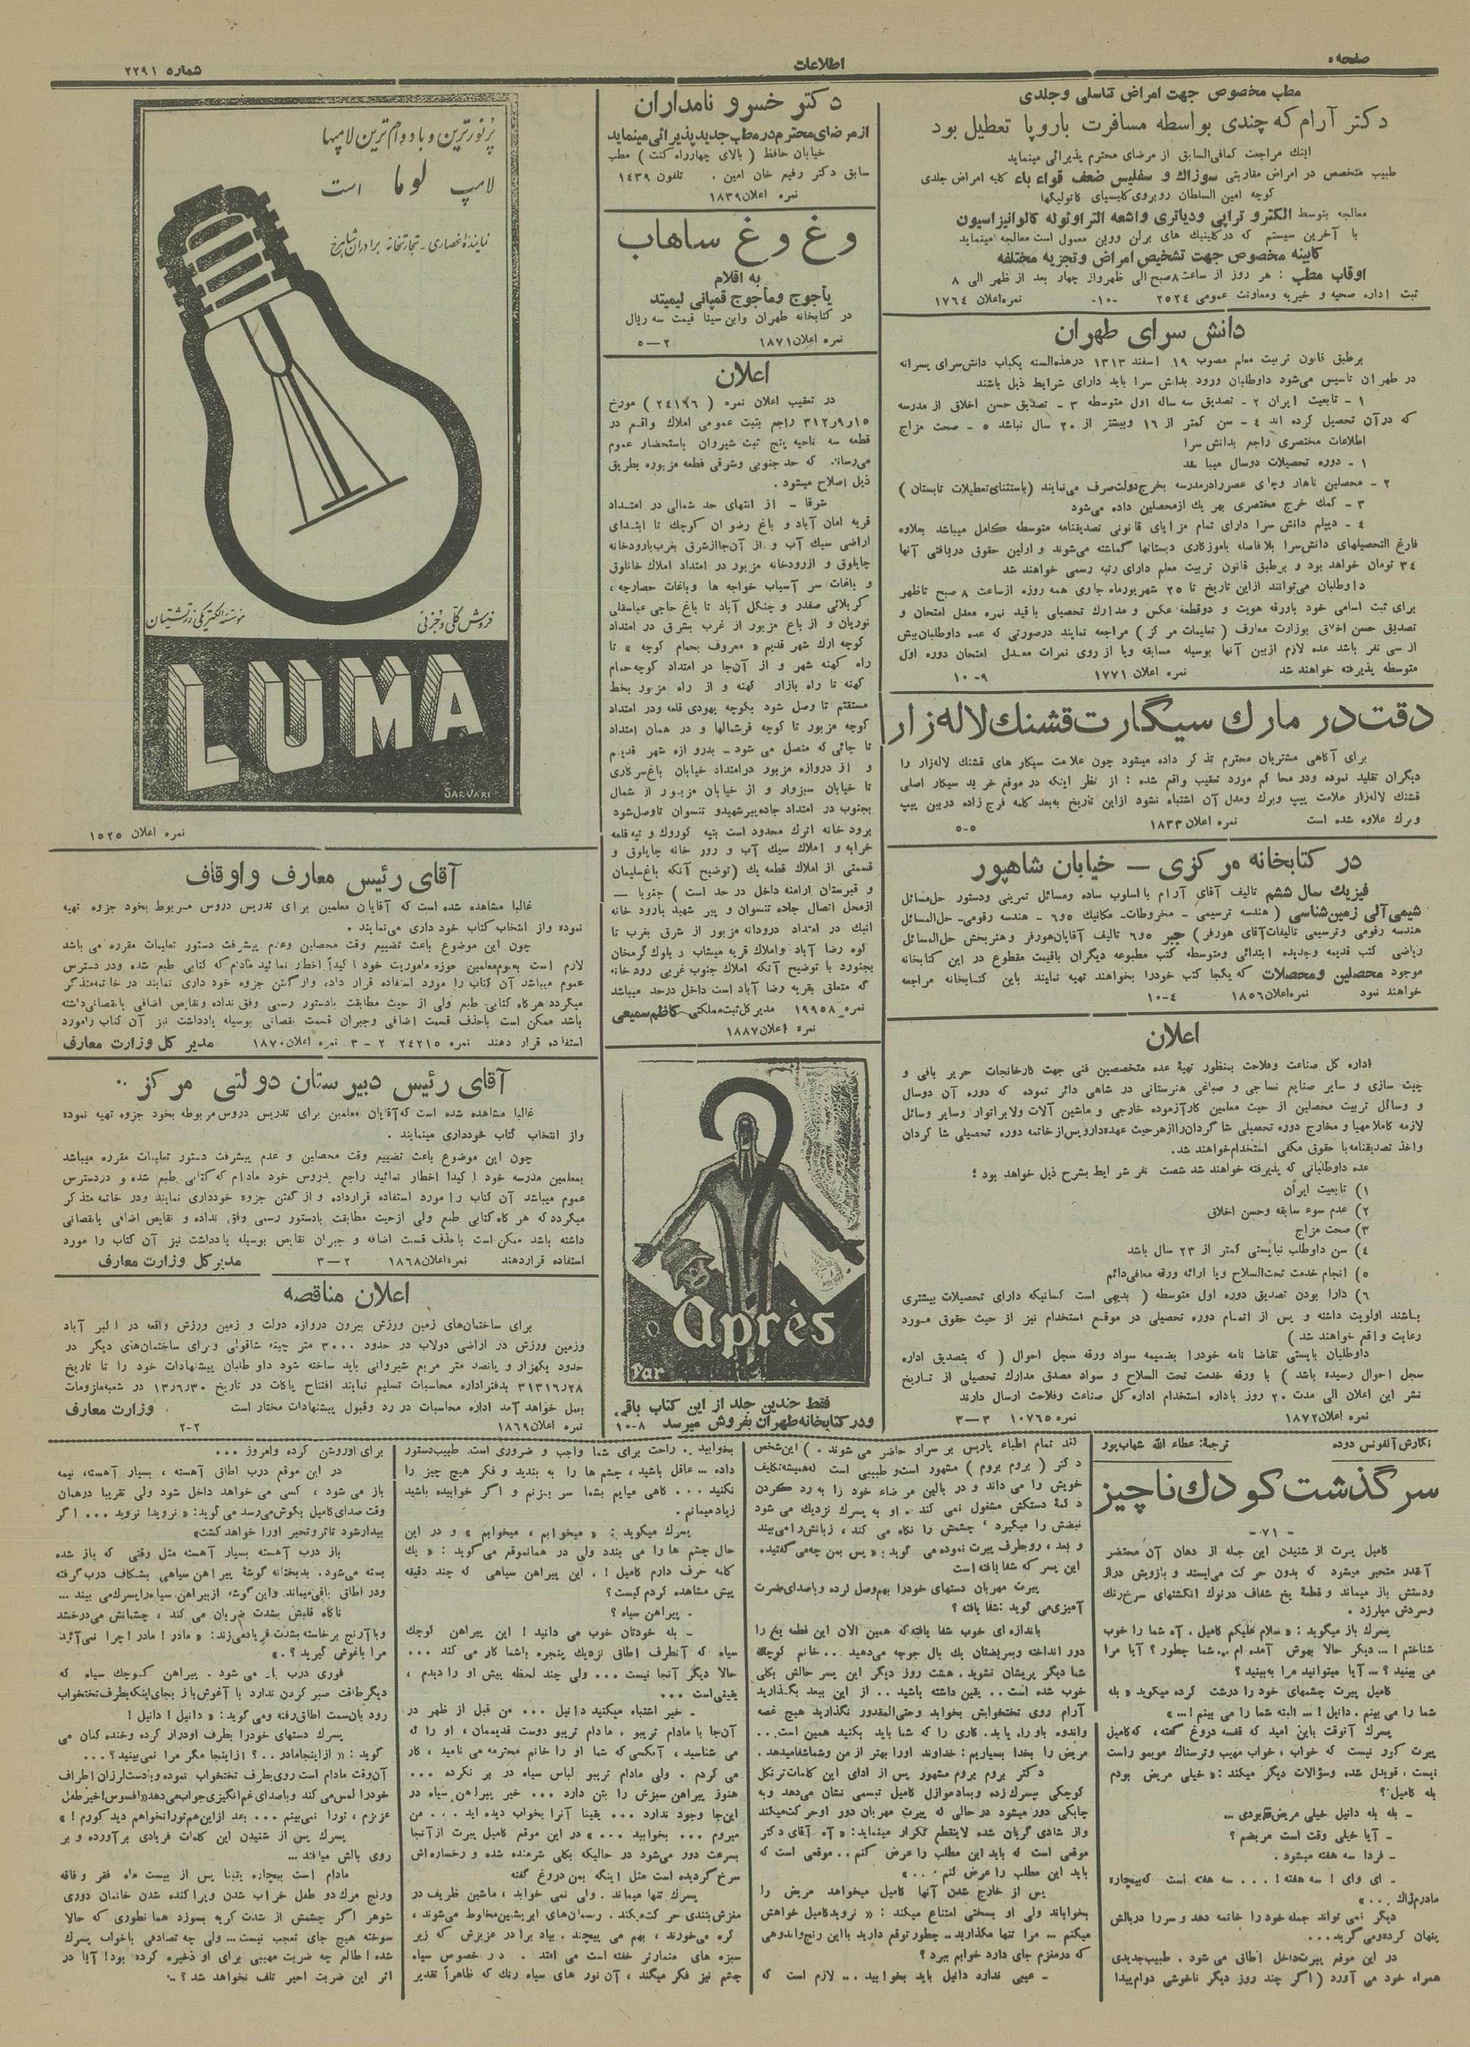 صفحه ۵
اطلاعات
شماره ۲۲۹۱
مطب مخصوص جهت امراض تناسلی وجلدی
دکتر آرام که چندی بواسطه مسافرت باروپا تعطیل بود
اینك مراجعت کمافی‌السابق از مرضای محترم پذیرائی مینماید
طبیب متخصص در امراض مقاربتی سوزاك و سفلیس ضعف قواء باء کلیه امراض جلدی
کوچه امین السلطان روبروی کلیسیای کاتولیکها
معالجه بتوسط الکترو تراپی ودیاتری واشعه التراوتوله کالوانیزاسیون
با آخرین سیستم که در کلینیك های برلن ووین معمول است معالجه مینماید
کابینه مخصوص جهت تشخیص امراض وتجزیه مختلفه
اوقات مطب : هر روز از ساعت ۸ صبح الی ظهر واز چهار بعد از ظهر الی ۸
ثبت اداره صحیه و خیریه ومعاونت عمومی ۲۵۲۴ -۱۰- نمره اعلان ۱۷۶۴
دانش سرای طهران
برطبق قانون تربیت معلم مصوب ۱۹ اسفند ۱۳۱۳ درهذه‌السنه یکباب دانش‌سرای پسرانه
در طهران تاسیس می‌شود داوطلبان ورود بدانش سرا باید دارای شرایط ذیل باشند
۱ - تابعیت ایران ۲ - تصدیق سه ساله اول متوسطه ۳ - تصدیق حسن اخلاق از مدرسه
که درآن تحصیل کرده اند ۴ - سن کمتر از ۱۶ وبیشتر از ۲۰ سال نباشد ۵ - صحت مزاج
اطلاعات مختصری راجع بدانش سرا
۱ - دوره تحصیلات دوسال میباشد
۲ - محصلین ناهار وچای عصررادرمدرسه بخرج‌دولت‌صرف می‌نمایند (باستثنای‌تعطیلات تابستان)
۳ - کمك خرج مختصری بهر یك ازمحصلین داده می‌شود
۴ - دیپلم دانش سرا دارای تمام مزایای قانونی تصدیقنامه متوسطه کامل میباشد بعلاوه
فارغ التحصیلهای دانش‌سرا بلافاصله باموزکاری دبستانها گماشته می‌شوند و اولین حقوق دریافتی آنها
۳۴ تومان خواهد بود و برطبق قانون تربیت معلم دارای رتبه رسمی خواهند شد
داوطلبان می‌توانند ازاین تاریخ تا ۲۵ شهریورماه جاری همه روزه ازساعت ۸ صبح تاظهر
برای ثبت اسامی خود باورقه هویت و دوقطعه عکس و مدارك تحصیلی باقید نمره معدل امتحان و
تصدیق حسن اخلاق بوزارت معارف (تعلیمات مرکز) مراجعه نمایند درصورتی که عده داوطلبان‌بیش
از سی نفر باشد عده لازم ازبین آنها بوسیله مسابقه ویا از روی نمرات معدل امتحان دوره اول
متوسطه پذیرفته خواهند شد نمره اعلان ۱۷۷۱ ۹-۱۰
دقت در مارك سیگارت قشنك لاله زار
برای آگاهی مشتریان محترم تذکر داده میشود چون علامت سیکار های قشنك لاله‌زار را
دیگران تقلید نموده ودر محاکم مورد تعقیب واقع شده : از نظر اینکه در موقع خرید سیکار اصلی
قشنك لاله‌زار علامت پیپ وبرك ومدل آن اشتباه نشود ازاین تاریخ به‌بعد کلمه فرج زاده دربین پیپ
وبرك علاوه شده است نمره اعلان ۱۸۳۳ ۵-۵
در کتابخانه مرکزی — خیابان شاهپور
فیزیك سال ششم تالیف آقای آرام با اسلوب ساده ومسائل تمرینی ودستور حل‌مسائل
شیمی‌آلی زمین‌شناسی (هندسه ترسیمی - مخروطات - مکانیك ۵و۶ - هندسه رقومی - حل‌المسائل
هندسه رقومی وترسیمی تالیفات‌آقای هورفر) جبر ۵و۶ تالیف آقایان‌هورفر وهنربخش حل‌المسائل
ریاضی کتب قدیمه وجدیده ابتدائی ومتوسطه کتب مطبوعه دیگران باقیمت مقطوع در این کتابخانه
موجود محصلین ومحصلات که یکجا کتب خودرا بخواهند تهیه نمایند باین کتابخانه مراجعه
خواهند نمود نمره اعلان ۱۸۵۶ ۴-۱۰
اعلان
اداره کل صناعت وفلاحت بمنظور تهیهٔ عده متخصصین فنی جهت کارخانجات حریر بافی و
چیت سازی و سایر صنایع نساجی و صباغی هنرستانی در شاهی دائر نموده که دوره آن دوسال
و وسائل تربیت محصلین از حیث معلمین کارآزموده خارجی و ماشین آلات ولابراتوار وسایر وسائل
لازمه کاملا مهیا و مخارج دوره تحصیلی شاگردان‌راازهرحیث عهده‌دارو‌پس‌ازخاتمه دوره تحصیلی شاگردان
واخذ تصدیقنامه با حقوق مکفی استخدام‌خواهند شد.
عده داوطلبانی که پذیرفته خواهند شد شصت نفر شرایط بشرح ذیل خواهد بود :
۱) تابعیت ایران
۲) عدم سوء سابقه وحسن اخلاق
۳) صحت مزاج
۴) سن داوطلب نبایستی کمتر از ۲۳ سال باشد
۵) انجام خدمت تحت‌السلاح ویا ارائه ورقه معافی‌دائم
۶) دارا بودن تصدیق دوره اول متوسطه (بدیهی است کسانیکه دارای تحصیلات بیشتری
باشند اولویت داشته و پس از اتمام دوره تحصیلی در موقع استخدام نیز از حیث حقوق مورد
رعایت واقع خواهند شد)
داوطلبان بایستی تقاضا نامه خودرا بضمیمه سواد ورقه سجل احوال (که بتصدیق اداره
سجل احوال رسیده باشد) با ورقه خدمت تحت السلاح و سواد مصدق مدارك تحصیلی از تاریخ
نشر این اعلان الی مدت ۲۰ روز باداره استخدام اداره کل صناعت وفلاحت ارسال دارند
نمره اعلان ۱۸۷۲ نمره ۱۰۷۶۵ ۳—۳
دکتر خسرو نامداران
از مرضای محترم در مطب جدید پذیرائی مینماید
خیابان حافظ (بالای چهارراه کنت) مطب
سابق دکتر رفیع خان امین . تلفون ۱۴۳۹
نمره اعلان ۱۸۳۹
وغ وغ ساهاب
به اقلام
یأجوج ومأجوج قمپانی لیمیتد
در کتابخانه طهران وابن سینا قیمت سه ریال
نمره اعلان ۱۸۷۱ ۲—۵
اعلان
در تعقیب اعلان نمره (۲۴۱۹۶) مورخ
۳۱۲ر۹ر۱۵ راجع بثبت عمومی املاك واقع در
قطعه سه ناحیه پنج ثبت شیروان باستحضار عموم
می‌رساند که حد جنوبی وشرقی قطعه مزبوره بطریق
ذیل اصلاح میشود .
شرقا - از انتهای حد شمالی در امتداد
قریه امان آباد و باغ رضوان کوچك تا ابتدای
اراضی سیك آب و از آن‌جاازشرق بغرب‌بارودخانه
چایلوق و ازرودخانه مزبور در امتداد املاك خانلوق
و باغات سر آسیاب خواجه ها وباغات حصارچه ،
کربلائی صفدر و چنکل آباد تا باغ حاجی عباسقلی
نودریان و از باغ مزبور از غرب بشرق در امتداد
کوچه ارك شهر قدیم « معروف بحمام کوچه » تا
راه کهنه شهر و از آن‌جا در امتداد کوچه‌حمام
کهنه تا راه بازار کهنه و از راه مزبور بخط
مستقیم تا وصل شود بکوچه یهودی قلعه ودر امتداد
کوچه مزبور تا کوچه فرشمالها و در همان امتداد
تا جائی که متصل می شود - بدروازه شهر قدیم
و از دروازه مزبور درامتداد خیابان باغ‌سرکاری
تا خیابان سبزوار و از خیابان مزبور از شمال
بجنوب در امتداد جاده‌پیرشهیدو تنسوان تاوصل‌شود
برود خانه اترك محدود است بتپه کوروك و تپه قلعه
خرابه و املاك سیك آب و رود خانه چایلوق و
قسمتی از املاك قطعه‌یك (توضیح آنکه باغ‌سلیمان
و قبرستان ارامنه داخل در حد است) جنوبا —
ازمحل اتصال جاده تنسوان و پیر شهید بارود خانه
اترك در امتداد رودخانه مزبور از شرق بغرب تا
لوه رضا آباد واملاك قریه میشاب و بلوك گرمخان
بجنورد با توضیح آنکه املاك جنوب غربی رودخانه
که متعلق بقریه رضا آباد است داخل درحد میباشد
نمره ۱۹۹۵۸ مدیر کل ثبت مملکتی کاظم سمیعی
نمره اعلان ۱۸۸۷
Après
par
فقط چندین جلد از این کتاب باقی
ودر کتابخانه طهران بفروش میرسد ۸-۱۰
پُرنورترین و با دوام ترین لامپها
لامپ لوما است
نماینده انحصاری - تجارتخانه برادران شاهرخ
فروش کلّی و جزئی
مؤسسهٔ الکتریکی زرتشتیان
LUMA
SARVARI
نمره اعلان ۱۵۲۵
آقای رئیس معارف و اوقاف
غالبا مشاهده شده است که آقایان معلمین برای تدریس دروس مربوط بخود جزوه تهیه
نموده واز انتخاب کتاب خود داری می‌نمایند .
چون این موضوع باعث تضییع وقت محصلین وعدم پیشرفت دستور تعلیمات مقرره می باشد
لازم است بعموم‌معلمین حوزه ماموریت خود اکیداً اخطار نمائید مادام که کتابی طبع شده ودر دسترس
عموم میباشد آن کتاب را مورد استفاده قرار داده وازگفتن جزوه خود داری نمایند در خاتمه‌متذکر
میگردد هرگاه کتابی طبع ولی از حیث مطابقت بادستور رسمی وفق نداده ونقایص اضافی یانقصانی‌داشته
باشد ممکن است باحذف قسمت اضافی وجبران قسمت نقصانی بوسیله یادداشت نیز آن کتاب رامورد
استفاده قرار دهند نمره ۲۴۲۱۵ ۲-۳ نمره اعلان ۱۸۷۰ مدیر کل وزارت معارف
آقای رئیس دبیرستان دولتی مرکز ..
غالبا مشاهده شده است که‌آقایان معلمین برای تدریس دروس‌مربوطه بخود جزوه تهیه نموده
واز انتخاب کتاب خودداری مینمایند .
چون این موضوع باعث تضییع وقت محصلین و عدم پیشرفت دستور تعلیمات مقرره میباشد
بمعلمین مدرسه خود اکیدا اخطار نمائید راجع بدروس خود مادام که کتابی طبع شده و دردسترس
عموم میباشد آن کتاب را مورد استفاده قرارداده و از گفتن جزوه خودداری نمایند ودر خاتمه متذکر
میگردد که هرگاه کتابی طبع ولی ازحیث مطابقت بادستور رسمی وفق نداده و نقایص اضافی یانقصانی
داشته باشد ممکن است باحذف قسمت اضافه و جبران نقایص بوسیله یادداشت نیز آن کتاب را مورد
استفاده قراردهند نمره اعلان ۱۸۶۸ ۲—۳ مدیر کل وزارت معارف
اعلان مناقصه
برای ساختمان‌های زمین ورزش بیرون دروازه دولت و زمین ورزش واقعه در اکبر آباد
وزمین ورزش در اراضی دولاب در حدود ۳۰۰۰ متر چینه شاقولی وبرای ساختمان‌های دیگر در
حدود یکهزار و پانصد متر مربع شیروانی باید ساخته شود داوطلبان پیشنهادات خود را تا تاریخ
۲۸ر۶ر۳۱۳۱ بدفتر اداره محاسبات تسلیم نمایند افتتاح پاکات در تاریخ ۳۰ر۶ر۱۳ در شعبه‌ملزومات
بعمل خواهد آمد اداره محاسبات در رد وقبول پیشنهادات مختار است وزارت معارف
نمره اعلان ۱۸۶۹ ۲-۲
نگارش آلفونس دوده ترجمهٔ: عطاء الله شهاب‌پور
سرگذشت کودك ناچیز
- ۷۱ -
کامیل پیرت از شنیدن این جمله از دهان آن محتضر
آنقدر متحیر میشود که بدون حرکت می‌ایستد و بازویش دراز
ودستش باز میماند و قطعهٔ یخ شفاف درنوك انگشتهای سرخ‌رنك
وسردش میلرزد .
پسرك باز میگوید: « سلام علیکم کامیل . آه شما را خوب
شناختم ! ... دیگر حالا بهوش آمده ام ... شما چطور ؟ آیا مرا
می بینید ؟ ... آیا میتوانید مرا به‌بینید ؟
کامیل پیرت چشمهای خود را درشت کرده میگوید « بله
شما را می بینم . دانیل ! ... البته شما را می بینم ! ... »
پسرك آنوقت باین امید که قفسه دروغ گفته ، که‌کامیل
پیرت کور نیست که خواب ، خواب مهیب وترسناك موبمو راست
نیست ، قویدل شده وسؤالات دیگر میکند: « خیلی مریض بودم
بله کامیل ؟
- بله بله دانیل خیلی مریض بودی ...
- آیا خیلی وقت است مریضم ؟
- فردا سه هفته میشود .
- ای وای ! سه هفته ! . ... سه هفته است که‌بیچاره
مادرم‌ژاك ... »
دیگر نمی تواند جمله خود را خاتمه دهد و سررا دربالش
پنهان کرده‌ومی‌گرید...
در این موقع پیرت‌داخل اطاق می شود . طبیب‌جدیدی
همراه خود می آورد (اگر چند روز دیگر ناخوشی دوام‌پیدا
کند تمام اطباء پاریس بر سر او حاضر می شوند .) این‌شخص
دکتر (بروم بروم) مشهور است و طبیبی است که‌همیشه‌تکلیف
خویش را می داند و در بالین مرضاء خود را به رد کردن
دکمهٔ دستکش مشغول نمی کند . او به پسرك نزدیك می شود
نبضش را میگیرد ، چشمش را نگاه می کند ، زبانش رامی‌بیند
و بعد ، روبطرف پیرت نموده می گوید : « پس بمن چه‌می‌گفتید.
این پسر که شفا یافته است
پیرت مهربان دستهای خودرا بهم‌وصل کرده وباصدای‌ضرت
آمیزی‌می گوید :شفا یافته ؟
باندازه ای خوب شفا یافته‌که همین الان این قطعه یخ را
دور انداخته وبمریضتان یك بال جوجه می‌دهید... خانم کوچك
شما دیگر پریشان نشوید . هشت روز دیگر این پسر حالش بکلی
خوب شده است .. یقین داشته باشید .. از این ببعد بگذارید
آرام روی تختخوابش بخوابد وحتی‌المقدور نگذارید هیچ غصه
واندوه باو راه یابد . کاری را که شما باید بکنید همین است...
مریض را بخدا بسپاریم : خداوند اورا بهتر از من وشماشفامیدهد .
دکتر بروم بروم مشهور پس از ادای این کلمات‌ترنگل
کوچکی بپسرك زده وبمادموازل کامیل تبسمی نشان می‌دهد وبه
چابکی دور میشود در حالی که پیرت مهربان دور اوحرکت‌میکند
واز شادی گریان شده لاینقطع تکرار مینماید: « آه آقای دکتر
موقعی است که باید این مطلب را عرض کنم .. موقعی است که
باید این مطلب را عرض کنم ... »
پس از خارج شدن آنها کامیل میخواهد مریض را
بخواباند ولی او بسختی امتناع میکند : « نرویدکامیل خواهش
میکنم ... مرا تنها مگذارید .. چطور توقع دارید بااین رنج‌واندوهی
که درمغزم جای دارد خوابم ببرد ؟
- عیبی ندارد دانیل باید بخوابید ... لازم است که
بخوابید .. راحت برای شما واجب و ضروری است. طبیب‌دستور
داده ... عاقل باشید ، چشم ها را به بندید و فکر هیچ چیز را
نکنید... گاهی میایم بشما سر بزنم و اگر خوابیده باشید
زیادمیمانم .
پسرك میگوید : « میخوابم ، میخوابم » و در این
حال چشم ها را می بندد ولی در همانموقع می‌گوید : « یك
کلمه حرف دارم کامیل ! . این پیراهن سیاهی که چند دقیقه
پیش مشاهده کردم کیست ؟
- پیراهن سیاه ؟
- بله خودتان خوب می دانید ! این پیراهن کوچك
سیاه که آنطرف اطاق نزدیك پنجره باشما کار می کند ...
حالا دیگر آنجا نیست ... ولی چند لحظه پیش او را دیدم ،
یقینی‌است ...
- خیر اشتباه میکنید دانیل ... من قبل از ظهر در
آن‌جا با مادام تریبو . مادام تریبو دوست قدیممان ، او را که
می شناسید ، آنکسی که شما او را خانم محترمه می نامید ، کار
می کردم . ولی مادام تریبو لباس سیاه در بر نکرده ...
هنوز پیراهن سبزش را بتن دارد ... خیر پیراهن سیاه در
این‌جا وجود ندارد ... یقینا آنرا بخواب دیده اید ... من
میروم ... بخوابید ... » در این موقع کامیل پیرت از آنجا
بسرعت دور می‌شود در حالیکه بکلی شرمنده شده و رخساره‌اش
سرخ گردیده است مثل اینکه بمن دروغ گفته
پسرك تنها میماند . ولی نمی خوابد ، ماشین ظریف در
مغزش‌بتندی حرکت‌میکند. رسمان‌های ابریشمین‌مخلوط می‌شوند ،
گره می‌خورند ، بهم می پیچند. بیاد برادر عزیزش که زیر
سبزه های متمارتر خفته است می افتد . در خصوص سیاه
چشم نیز فکر میکند ، آن نور های سیاه رنك که ظاهراً تقدیر
برای او روشن کرده وامروز ...
در این موقع درب اطاق آهسته ، بسیار آهسته، نیمه
باز می شود ، کسی می خواهد داخل شود ولی تقریبا درهمان
وقت صدای‌کامیل بگوش‌می‌رسد می‌گوید: « نروید! نروید ... اگر
بیدارشود تاثر وتحیر اورا خواهد کشت»
باز درب آهسته بسیار آهسته مثل وقتی که باز شده
بسته می‌شود. بدبختانه گوشهٔ پیراهن سیاهی بشکاف درب‌گرفته
ودر اطاق باقی‌میماند واین‌گوشه ازپیراهن سیاه راپسرك‌می بیند ...
ناگاه قلبش بشدت ضربان می کند ، چشمانش می‌درخشد
وباآرنج برخاسته بشدت فریادمی‌زند: « مادر ! مادر ! چرا نمی‌آئید
مرا باغوش گیرید ؟ .»
فوری درب باز می شود . پیراهن کوچك سیاه که
دیگرطاقت صبر کردن ندارد با آغوش‌باز بجای‌اینکه‌بطرف‌تختخواب
رود بان‌سمت اطاق‌رفته ومی‌گوید: « دانیل ! دانیل !
پسرك دستهای خودرا بطرف اودراز کرده وخنده کنان می
گوید : « ازاینجامادر .. ؟ ازاینجا مگر مرا نمی‌بینید ؟ ...
آن‌وقت مادام است روی‌بطرف تختخواب نموده وبادست‌لرزان اطراف
خودرا لمس‌می‌کند وباصدای‌غم‌انگیزی‌جواب‌می‌دهد«افسوس‌اخیرطفل
عزیزم ، تورا نمی‌بینم ... بعد ازاین‌هم‌تورانخواهم دید کورم ! »
پسرك پس از شنیدن این کلمات فریادی برآورده و بر
روی بالش میافتد ...
مادام است بیچاره یقینا پس از بیست ماه فقر و فاقه
ورنج مرك دو طفل خراب شدن وپراکنده شدن خانمان دوری
شوهر اگر چشمش از شدت گریه بسوزد همانطوری که حالا
سوخته هیچ جای تعجب نیست ... ولی چه تصادفی باخواب پسرك
شده ! ظالم چه ضربت مهیبی برای او ذخیره کرده بود! آیا در
اثر این ضربت اخیر تلف نخواهد شد ؟ ..